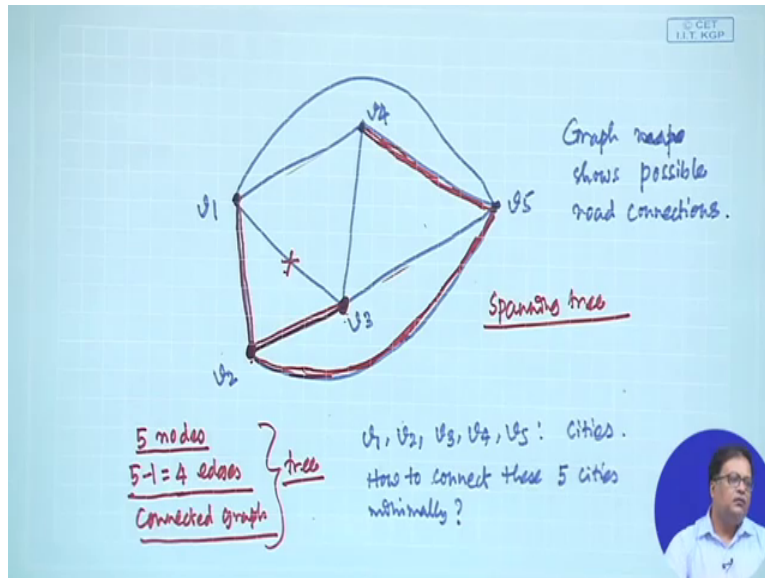 © CET
I.I.T. KGP
v4
v1
v5
v3
v2
Graph
shows possible
road connections.
Spanning tree
5 nodes
5-1=4 edges
Connected graph
tree
v1, v2, v3, v4, v5 : Cities.
How to connect these 5 cities
minimally?